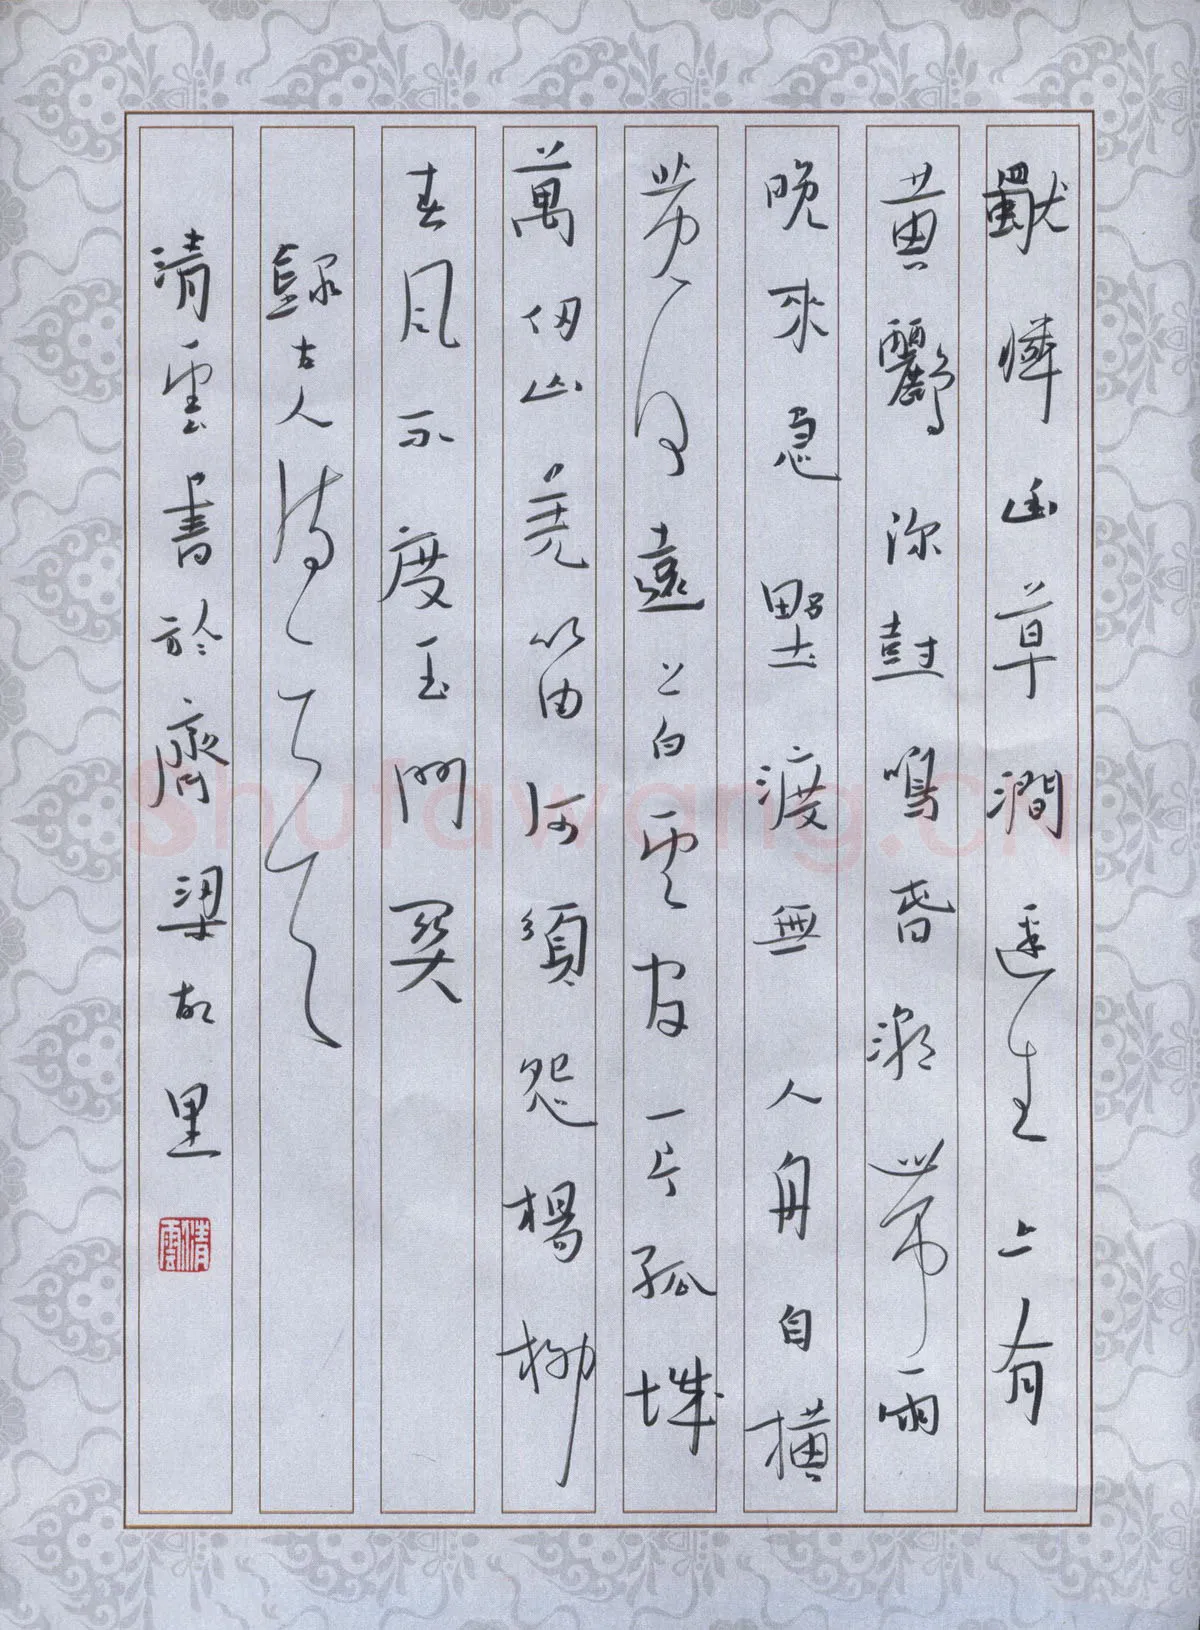 獨憐幽草澗邊生上有
黃鸝深尌鳴春潮帶雨
晚來急野渡無人舟自橫
黃河遠上白雲間一片孤城
萬仞山羌笛何須怨楊柳
春風不度玉門關
錄古人詩
清雲書於齊梁故里
清雲
Shufawang.CN